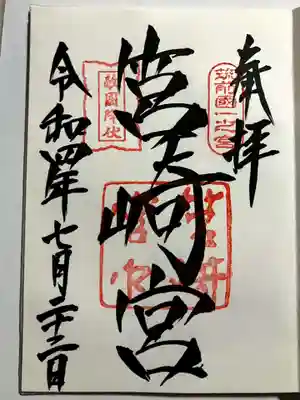 奉拝
筑前國一之宮
筥﨑宮
敵國降伏
令和四年七月二十二日